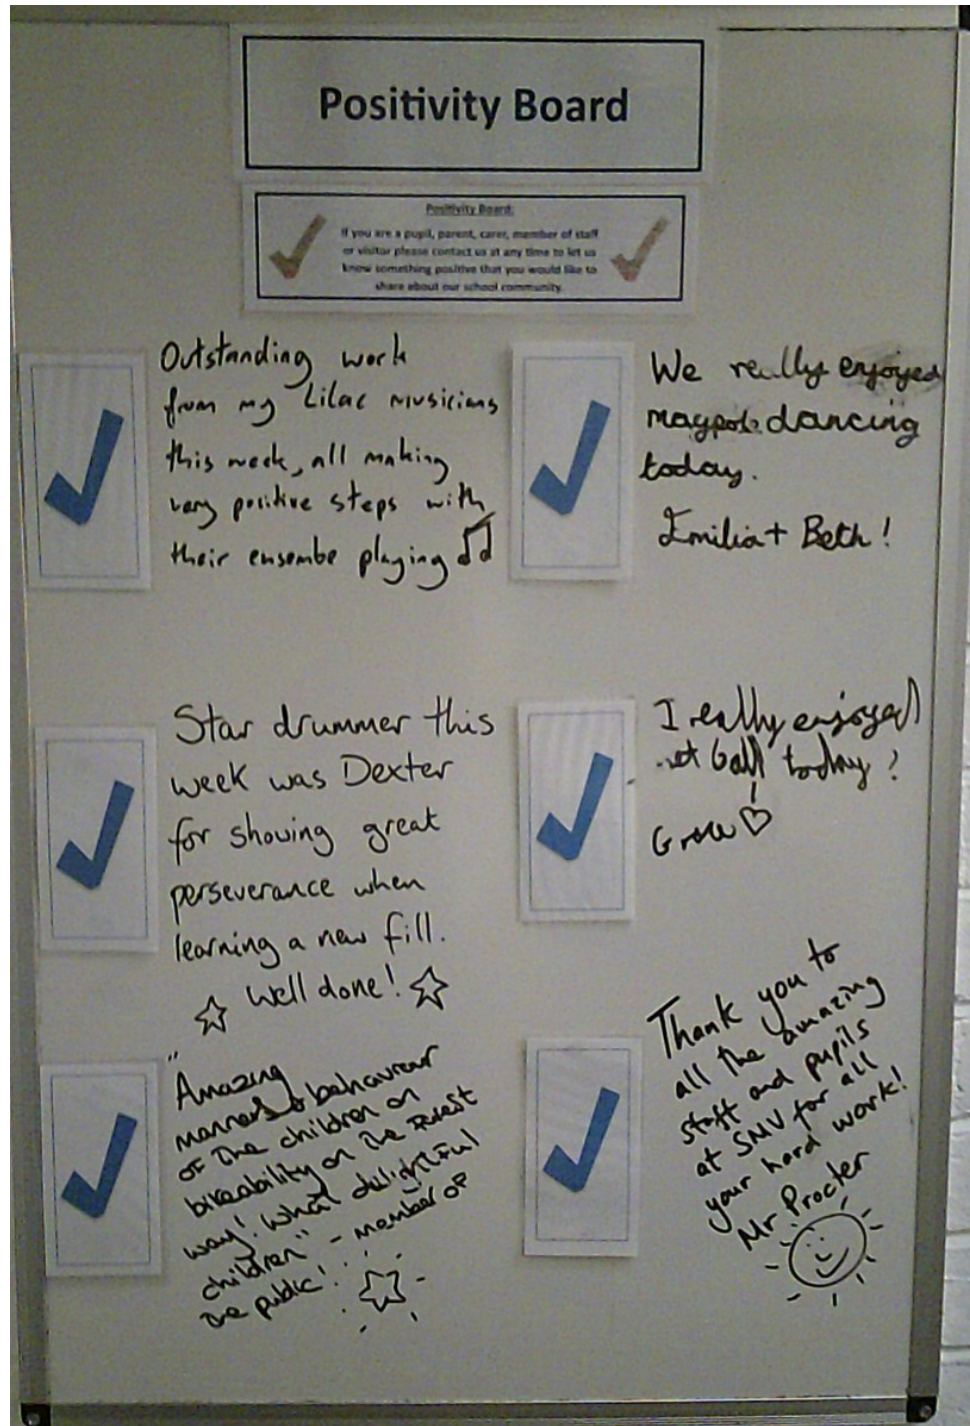 Positivity Board
Positivity Board:
If you are a pupil, parent, carer, member of staff
or visitor please contact us at any time to let us
know something positive that you would like to
share about our school community.
Outstanding work
from my Lilac musicians
this week, all making
very positive steps with
their ensembe playing
We really enjoyed
maypole dancing
today.
Emilia + Beth!
Star drummer this
week was Dexter
for showing great
perseverance when
learning a new fill.
Well done!
I really enjoyed
net ball today!
"Amazing
manners & behaviour
of the children on
bikeability on the Forest
way! What delightful
children" - member of
the public!
Thank you to
all the amazing
staff and pupils
at SMV for all
your hard work!
Mr Procter